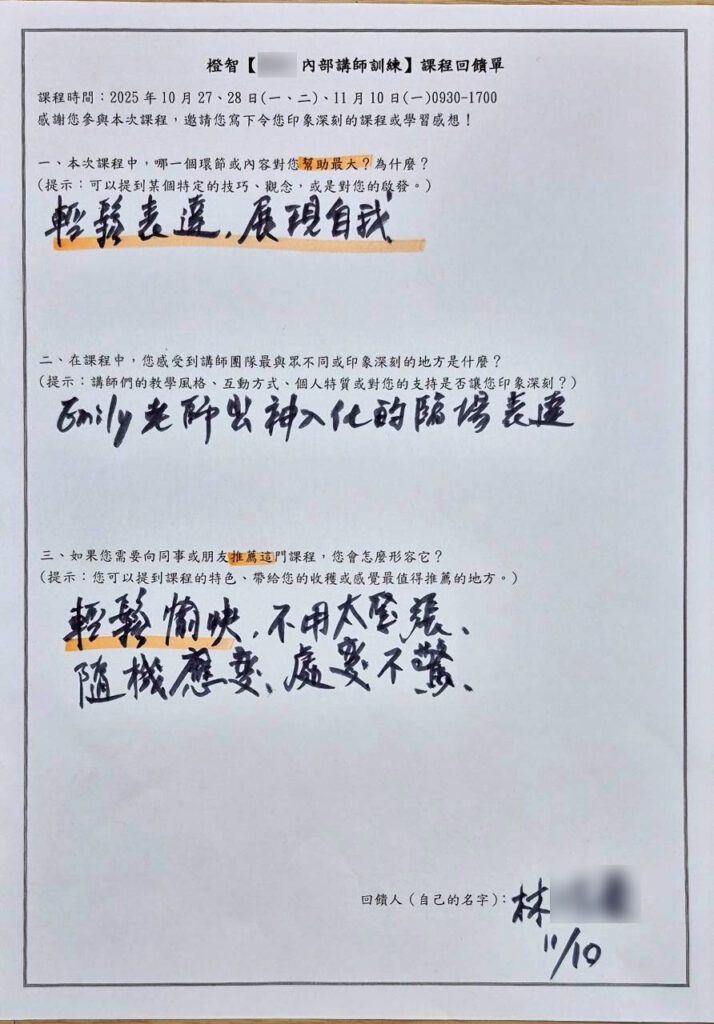 橙智【 內部講師訓練】課程回饋單
課程時間：2025 年 10 月 27、28 日(一、二)、11 月 10 日(一)0930-1700
感謝您參與本次課程，邀請您寫下令您印象深刻的課程或學習感想！
一、本次課程中，哪一個環節或內容對您幫助最大？為什麼？
(提示：可以提到某個特定的技巧、觀念，或是對您的啟發。)
輕鬆表達，展現自我
二、在課程中，您感受到講師團隊最與眾不同或印象深刻的地方是什麼？
(提示：講師們的教學風格、互動方式、個人特質或對您的支持是否讓您印象深刻？)
Emily 老師出神入化的臨場表達
三、如果您需要向同事或朋友推薦這門課程，您會怎麼形容它？
(提示：您可以提到課程的特色、帶給您的收穫或感覺最值得推薦的地方。)
輕鬆愉快，不用太緊張、
隨機應變、處變不驚、
回饋人（自己的名字）：林
11/10